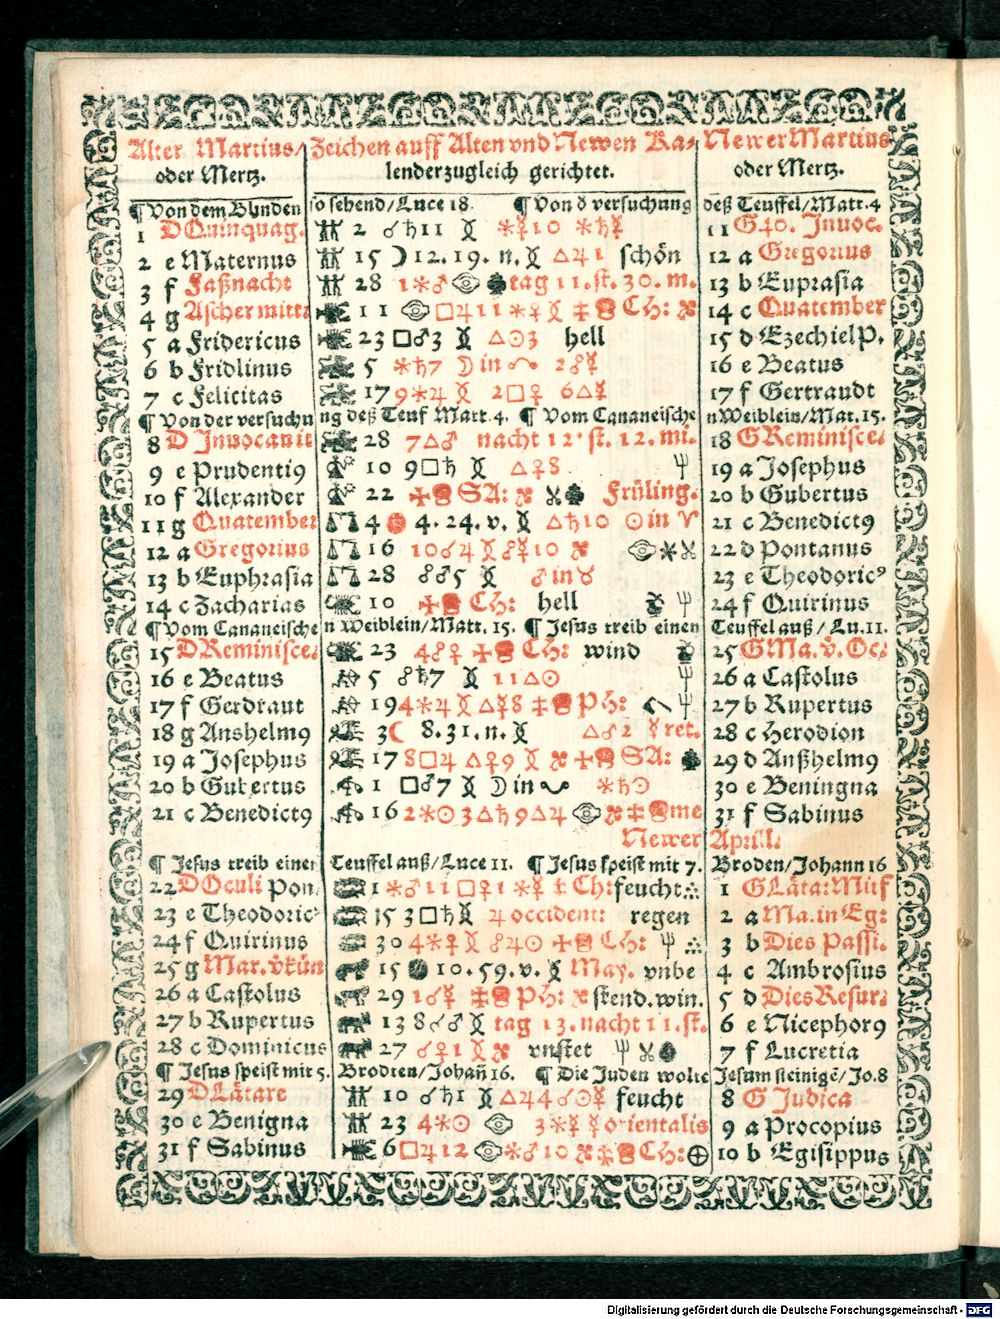 Alter Martius/ Zeichen auff Alten vnd Newen Ka- Newer Martius
oder Mertz. lenderzugleich gerichtet. oder Mertz.
¶ Von dem Blynden so sehend/Luce 18. ¶ Von d versuchung deß Teuffel/Matt.4
1 D Quinquag. 2 ☌♄11 ⚹☿10 ⚹♄☿ 11 G 40. Inuoc.
2 e Maternus 15 ☽12.19.n. △♃1 schön 12 a Gregorius
3 f Faßnacht 28 1⚹♂ tag 11.st.30.m. 13 b Euprasia
4 g Ascher mitt: 11 □♃11⚹♀ CH: 14 c Quatember
5 a Fridericus 23 □♂3 △☉3 hell 15 d Ezechiel P.
6 b Fridlinus 5 ⚹♄7 ☽in 2☍☿ 16 e Beatus
7 c Felicitas 17 9⚹♃ 2□♀ 6△☿ 17 f Gertraudt
¶ Von der versuchu ng deß Teuf Matt.4. ¶ Vom Cananeische n Weiblein/Mat.15.
8 D Inuocauit 28 7△♂ nacht 12.st.12.mi. 18 G Reminisce.
9 e Prudenti9 10 9□♄ △♀8 19 a Josephus
10 f Alexander 22 SA: Früling. 20 b Gubertus
11 g Quatember 4 4.24.v. △♄10 ☉in ♈ 21 c Benedict9
12 a Gregorius 16 10☌♃ ☍☿10 22 d Pontanus
13 b Euphrasia 28 ☍♂5 ♂in♉ 23 e Theodoric9
14 c Zacharias 10 CH: hell 24 f Quirinus
¶ Vom Cananeische n Weiblein/Matt.15. ¶ Jesus treib einen Teuffel auß/Lu.11.
15 D Reminisce. 23 4☍♀ CH: wind 25 G Ma.v.Oc.
16 e Beatus 5 ☍♄7 11△☉ 26 a Castolus
17 f Gerdraut 19 4⚹♃ △☿8 PH: 27 b Rupertus
18 g Anshelm9 3 ☾ 8.31.n. △♂2 ☿ret. 28 c Herodion
19 a Josephus 17 8□♃ △♀9 SA: 29 d Anßhelm9
20 b Gubertus 1 □♂7 ☽in ⚹♄☉ 30 e Beningna
21 c Benedict9 16 2⚹☉ 3△♄ 9△♃ me 31 f Sabinus
Newer April.
¶ Jesus treib einen Teuffel auß/Luce 11. ¶ Jesus speist mit 7. Broden/Johann 16
22 D Oculi Pon. 1 ⚹♂11 □♀1 ⚹☿ CH: feucht 1 G Läta: Mitf
23 e Theodoric9 15 3□♄ ♃ occident: regen 2 a Ma. in Eg:
24 f Quirinus 30 4⚹☿ ☍♃☉ CH: 3 b Dies Passi.
25 g Mar. vkün 15 10.59.v. May. vnbe 4 c Ambrosius
26 a Castolus 29 1☌☿ PH: stend.win. 5 d Dies Resur:
27 b Rupertus 13 8☌♂ tag 13.nacht 11.st. 6 e Nicephor9
28 c Dominicus 27 ☌♀1 vnstet 7 f Lucretia
¶ Jesus speist mit 5. Brodten/Johañ 16. ¶ Die Juden wolte Jesum steinigē/Jo.8
29 D Lätare 10 ☌♄1 △♃4 ☌☉☿ feucht 8 G Judica
30 e Benigna 23 4⚹☉ 3⚹☿ ☿orientalis 9 a Procopius
31 f Sabinus 6 □♃12 ⚹♂10 CH: 10 b Egisippus
Digitalisierung gefördert durch die Deutsche Forschungsgemeinschaft - DFG